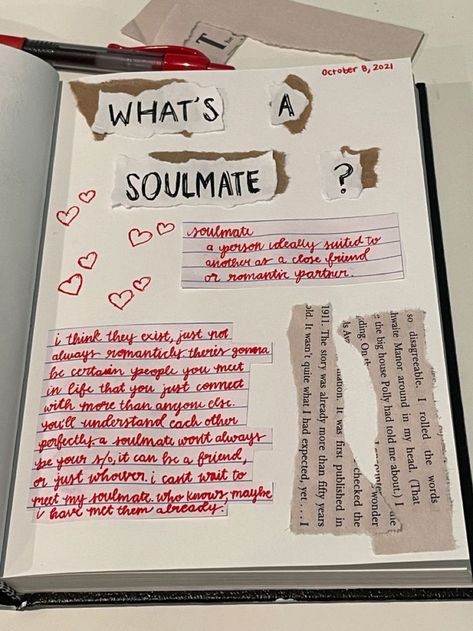 October 8, 2021
WHAT'S A
SOULMATE ?
soulmate
a person ideally suited to
another as a close friend
or romantic partner.
i think they exist, just not
always romanticly. there's gonna
be certain people you meet
in life that you just connect
with more than anyone else.
you'll understand each other
perfectly. a soulmate won't always
be your s/o, it can be a friend,
or just whoever. i can't wait to
meet my soulmate. who knows, maybe
i have met them already.
so disagreeable. I rolled the words
hwaite Manor around in my head. (That
the big house Polly had told me about.) I
wonder
checked the
ation. It was first published in
1911. The story was already more than fifty years
old. It wasn't quite what I had expected, yet . . . I